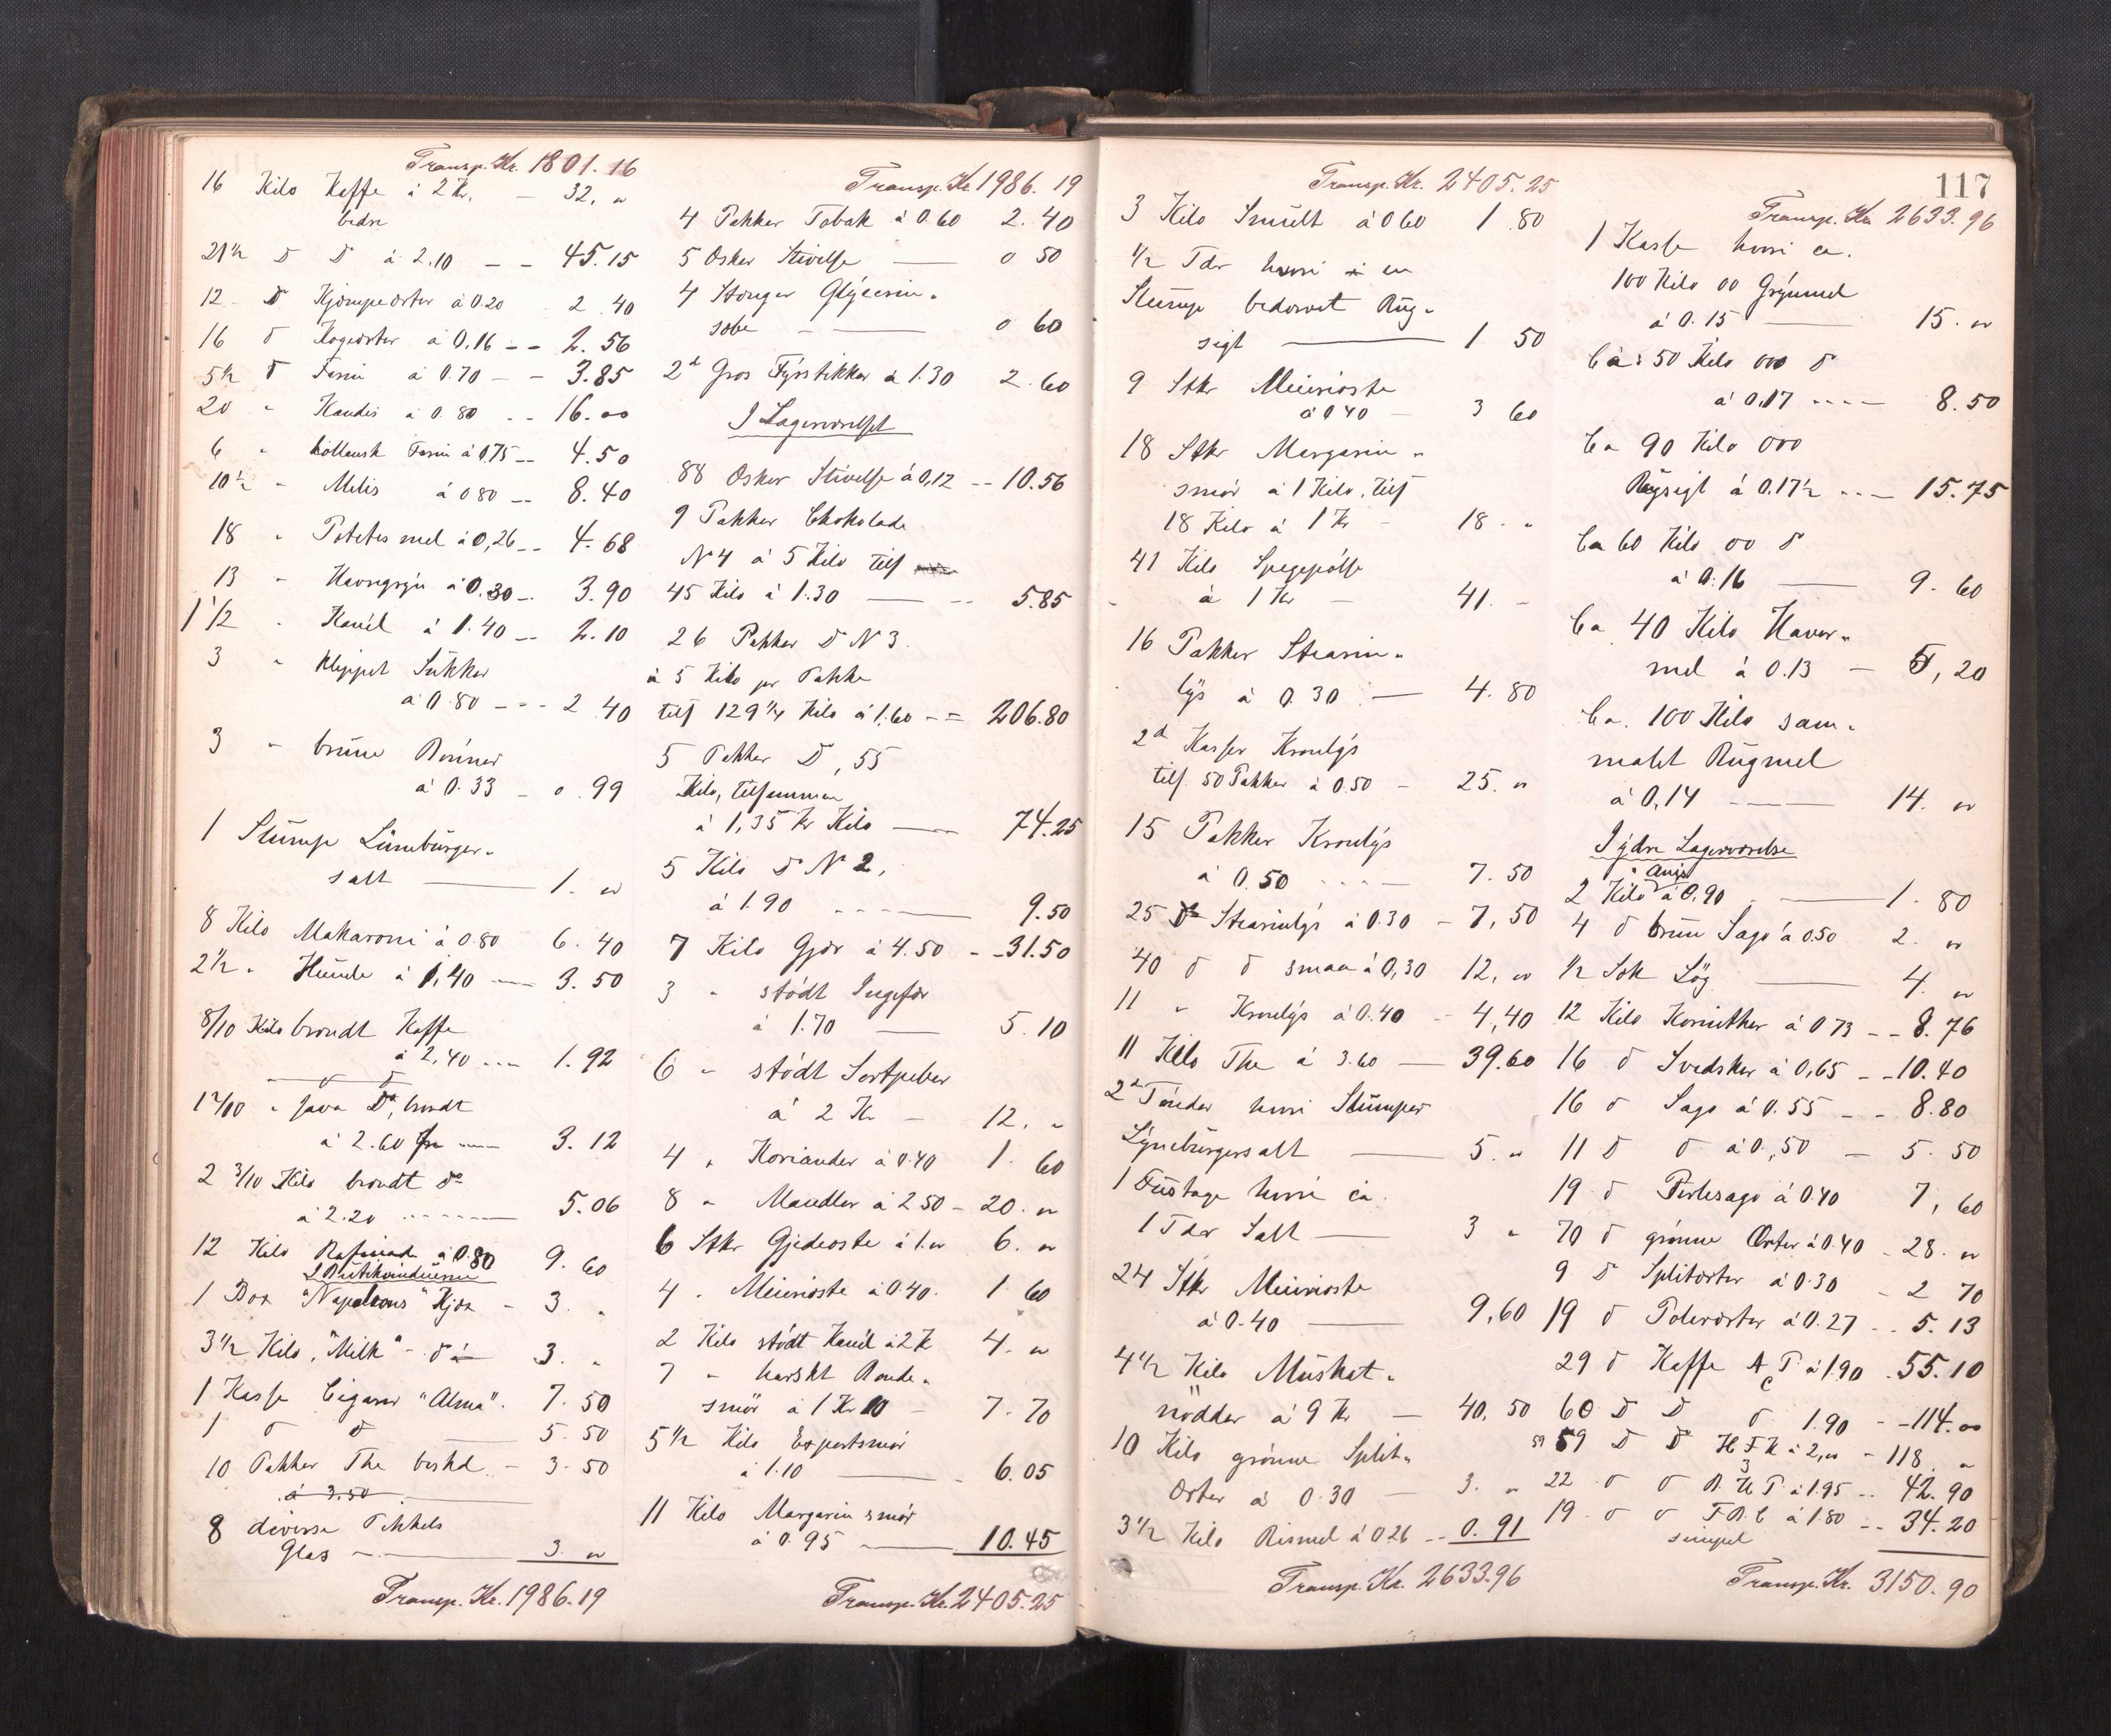 Transp. Kr. 1801.16
16 Kilo Kaffe à 2 Kr. — 32. "
bedre
21 1/2 D D à 2.10 — — 45.15
12 D Kjæmpeærter à 0.20 2.40
16 D Kogeærter à 0.16 — — 2.56
5 1/2 D Farin à 0.70 — — 3.85
20 " Kandis à 0.80 — — 16.00
6 " hollansk Farin à 0.75 — 4.50
10 1/2 " Melis à 0.80 — 8.40
18 " Potetesmel à 0,26 — 4.68
13 " Havregryn à 0.30 — 3.90
1 1/2 " Kanél à 1.40 — 2.10
3 " klippet Sukker
à 0.80 — — — 2 40
3 " brune Bönner
à 0.33 — 0.99
1 Slump Lüneburger-
salt — 1. "
8 Kilo Makaroni à 0.80 6.40
2 1/2 " Humle à 1,40 — 3.50
8/10 Kilo brændt Kaffe
à 2,40 — 1.92
1 2/10 " Java Do, brændt
à 2.60 — 3.12
2 3/10 Kilo brændt do
à 2.20 — 5.06
12 Kilo Rafinade à 0.80 9.60
I Butikvinduerne
1 Box "Napoleons" Kjex — 3. "
3 1/2 Kilo, "Milk" - do — 3. "
1 Kasse Cigarer "Alma" 7.50
1 D D — 5.50
10 Pakker The beskd. — 3.50
à 3.50
8 diverse Pikkels
Glas — 3. "
Transp. Kr. 1986.19
Transp. Kr. 1986.19
4 Pakker Tobak à 0.60 2.40
5 Æsker Stivelse — 0 50
4 Stænger Glycerin-
sæbe — 0 60
2 Gros Fyrstikker à 1.30 2.60
I Lagerværelset
88 Æsker Stivelse à 0,12 — 10.56
9 Pakker Chokolade
N 4 à 5 Kilo tils
45 Kilo à 1.30 — 5.85
26 Pakker D N 3.
à 5 Kilo pr Pakke
tils 129 1/4 Kilo à 1.60 — 206.80
5 Pakker D, 55
Kilo, tilsammen
à 1,35 Kr Kilo — 74.25
5 Kilo D N 2,
à 1.90 — 9.50
7 Kilo Gjær à 4.50 — 31.50
3 " stödt Ingefær
à 1.70 — 5.10
6 " stödt Sortpeber
à 2 Kr — 12. "
4 " Koriander à 0.40 1.60
8 " Mandler à 2.50 — 20. "
6 Stkr Gjedeoste à 1. " 6. "
4 " Meierioste à 0.40. 1 60
2 Kilo stödt Kanél à 2 K 4. "
7 " harskt Bonde-
smör à 1 Kr 10 — 7.70
5 1/2 Kilo Exportsmör
à 1.10 — 6.05
11 Kilo Margarin smör
à 0.95 — 10.45
Transp. Kr. 2405.25
117
Transp. Kr. 2405.25
3 Kilo Smult à 0.60 1.80
1/2 Tdr hvori en
Slump bedærvet Rug-
sigt — 1 50
9 Stkr Meierioste
à 0.40 — 3 60
18 Stkr Margarin-
smör à 1 Kilo, tils
18 Kilo à 1 Kr — 18. "
41 Kilo Spegepölse
à 1 Kr — 41. —
16 Pakker Stearin-
lys à 0.30 — 4.80
2 Kasser Kronlys
tils 50 Pakker à 0.50 — 25. "
15 Pakker Kronlys
à 0.50 — 7.50
25 Do Stearinlys à 0.30 — 7,50
40 D D smaa à 0,30 12, "
11 " Kronlys à 0.40 — 4,40
11 Kilo The à 3.60 — 39.60
2 Tönder hvori Slumper
Lyneburgersalt — 5. "
1 Fustage hvori ca.
1 Tdr Salt — 3 "
24 Stkr Meierioste
à 0.40 — 9,60
4 1/2 Kilo Muskat-
nödder à 9 Kr — 40,50
10 Kilo grönne Split-
Ærter à 0.30 — 3. "
3 1/2 Kilo Rismel à 0.26 — 0.91
Transp. Kr. 2633.96
Transp. Kr. 2633.96
1 Kasse hvori ca.
100 Kilo 00 Grynmel
à 0.15 — 15. "
Ca: 50 Kilo 000 D
à 0.17 — 8.50
Ca 90 Kilo 000
Rugsigt à 0.17 1/2 — 15.75
Ca 60 Kilo 00 D
à 0.16 — 9.60
Ca 40 Kilo Haver-
mel à 0.13 — 5,20
Ca. 100 Kilo sam-
malet Rugmel
à 0,14 — 14. "
I ydre Lagerværelse
Anis
2 Kilo à 0,90 — 1.80
4 D brun Sago à 0.50 2. "
1/2 Sæk Løg — 4. "
12 Kilo Korinther à 0.73 — 8.76
16 D Svedsker à 0,65 — 10.40
16 D Sago à 0.55 — 8.80
11 D D à 0,50 — 5.50
19 D Perlesago à 0.40 7,60
70 D grönne Ærter à 0.40 — 28. "
9 D Splitærter à 0.30 — 2 70
19 D Polerærter à 0.27 — 5.13
29 D Kaffe A P à 1.90 — 55.10
C
60 D D D 1.90 — 114.00
59 59 D D H F K à 2, " — 118 "
3
22 D D B. K P. à 1.95 — 42.90
19 D D F. B. C à 1.80 — 34.20
simpel
Transp. Kr. 3150.90